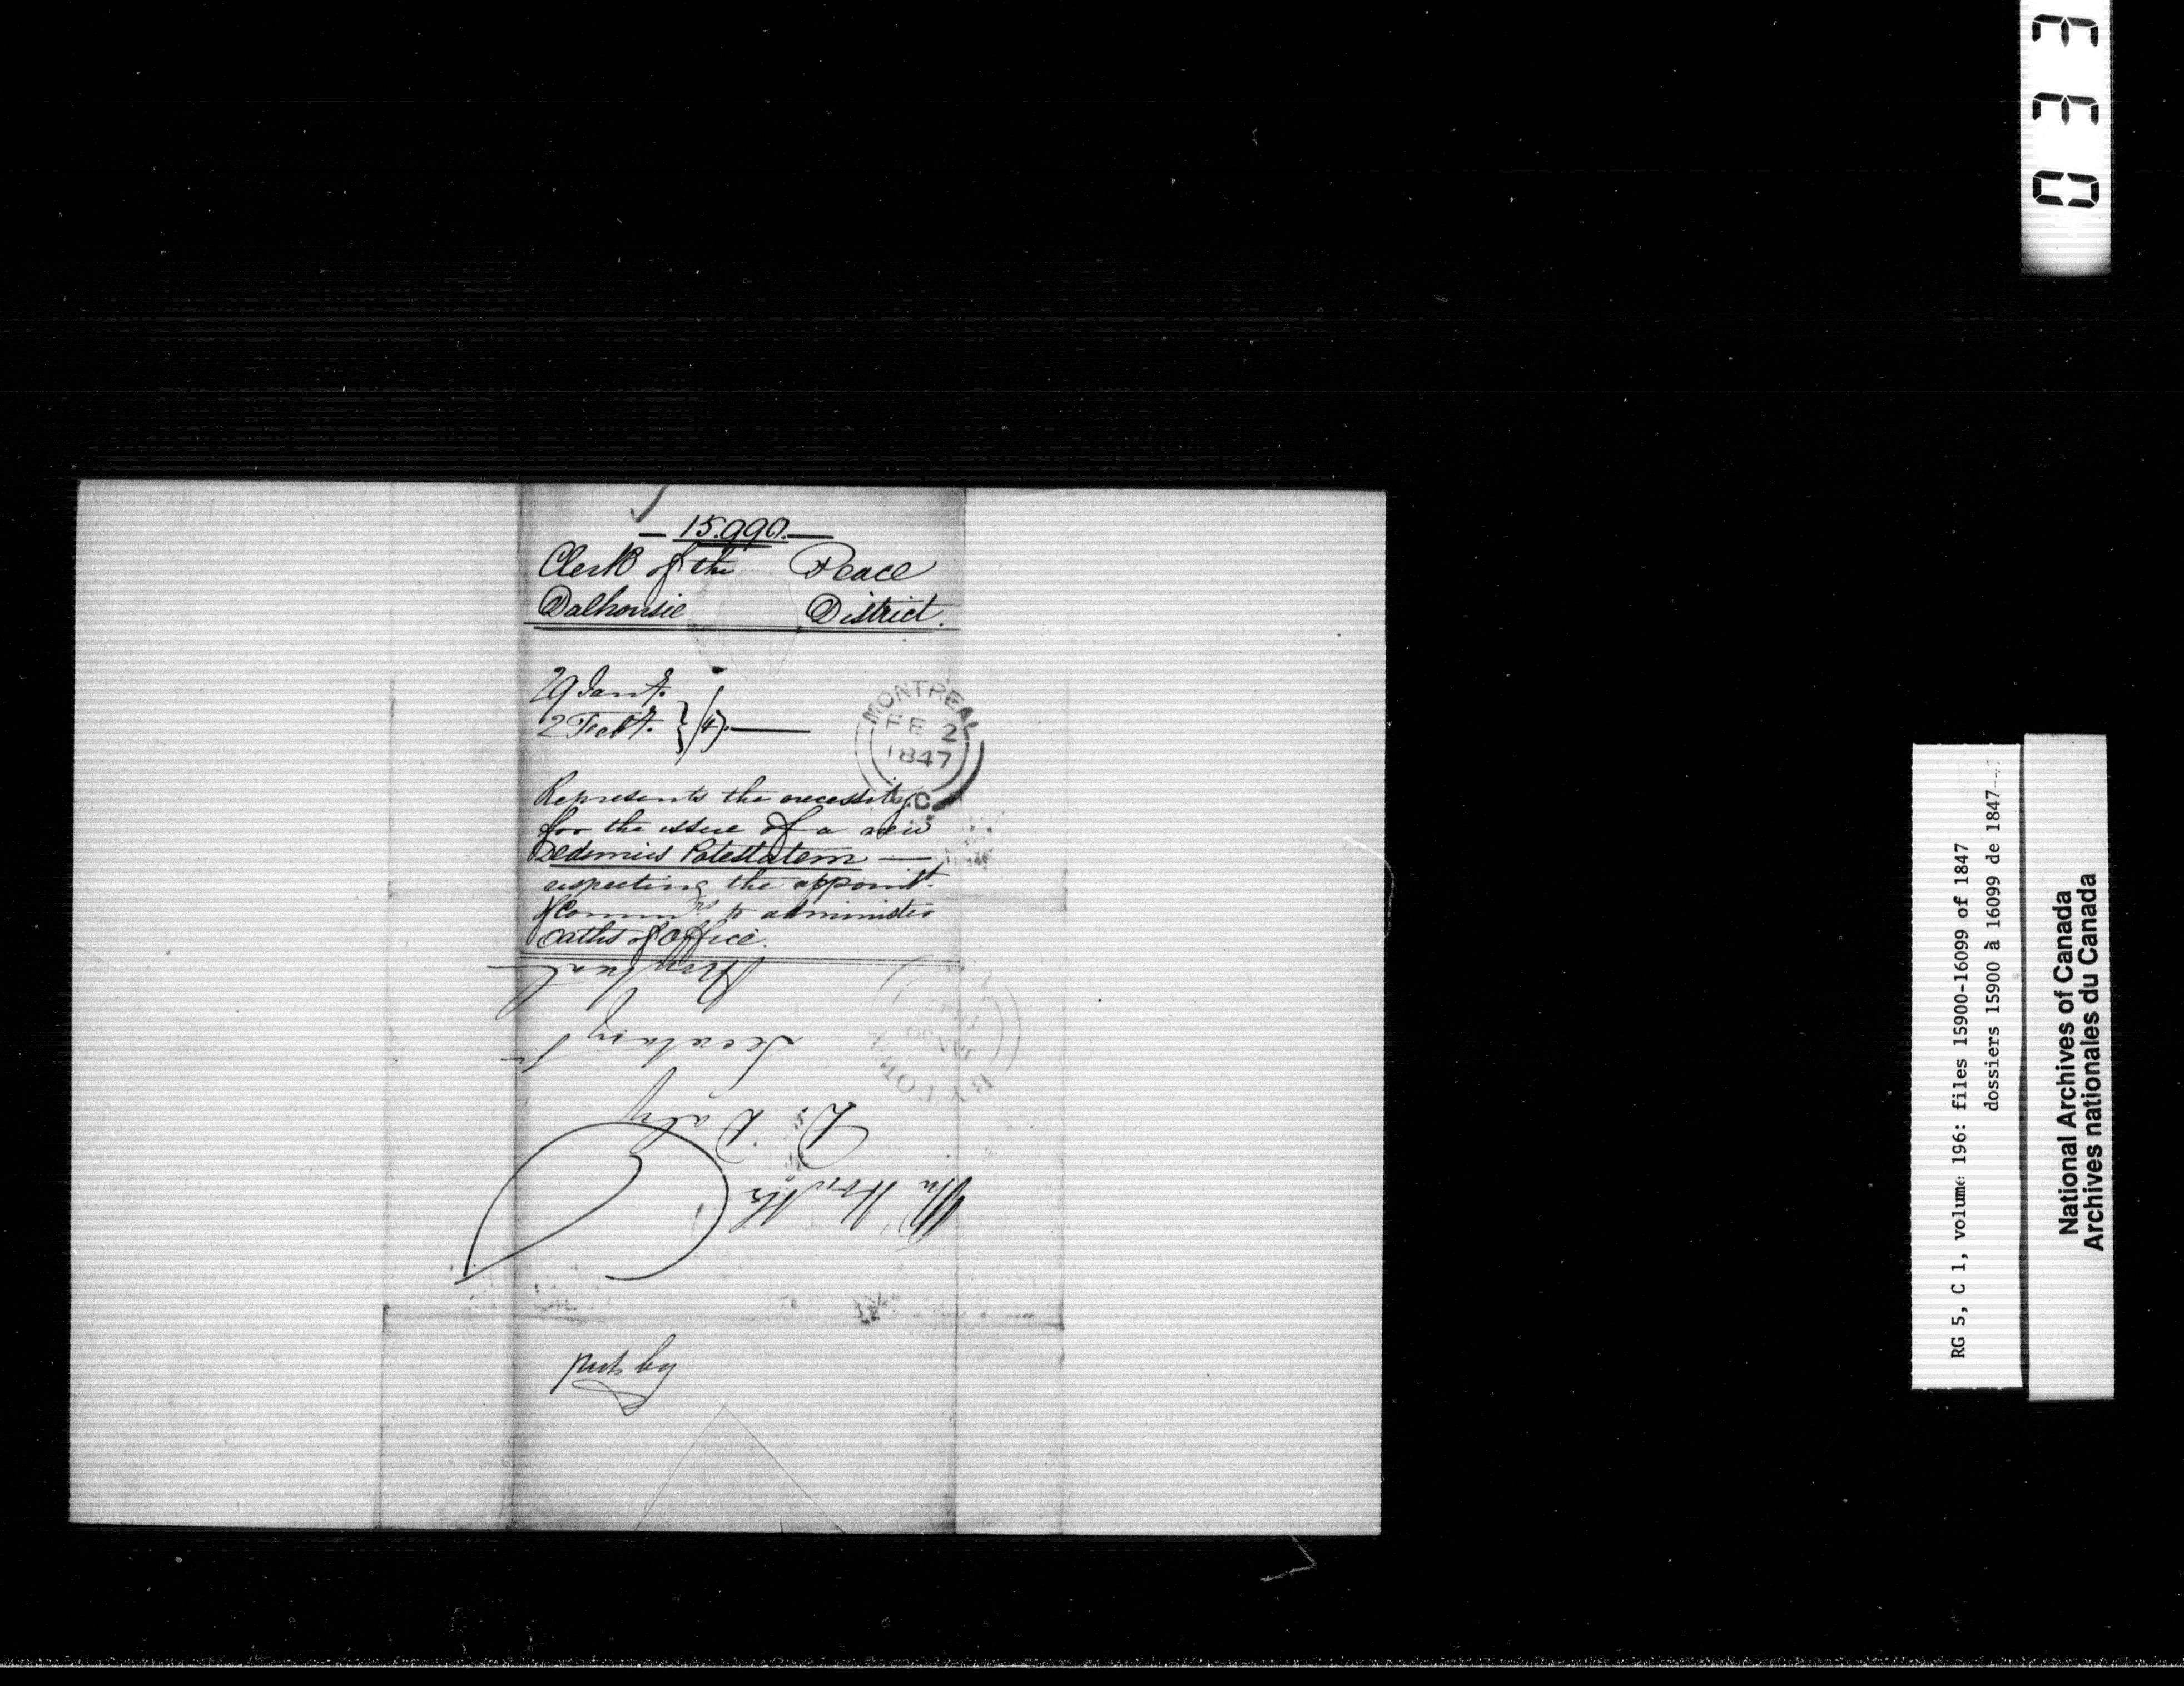 — 15.990. —
Clerk of the Peace
Dalhousie District.
29 Jany.
2 Feby. } /47. —
MONTREAL
FE 2
1847
L.C
Represents the necessity
for the issue of a new
Dedimus Potestatem —
respecting the appointt.
of Commrs. to administer
Oaths of Office.
The Honble
D. Daly
Secretary
Montreal
BYTOWN
JAN 30
1847
put by
033
RG 5, C 1, volume 196: files 15900-16099 of 1847
dossiers 15900 à 16099 de 1847
National Archives of Canada
Archives nationales du Canada